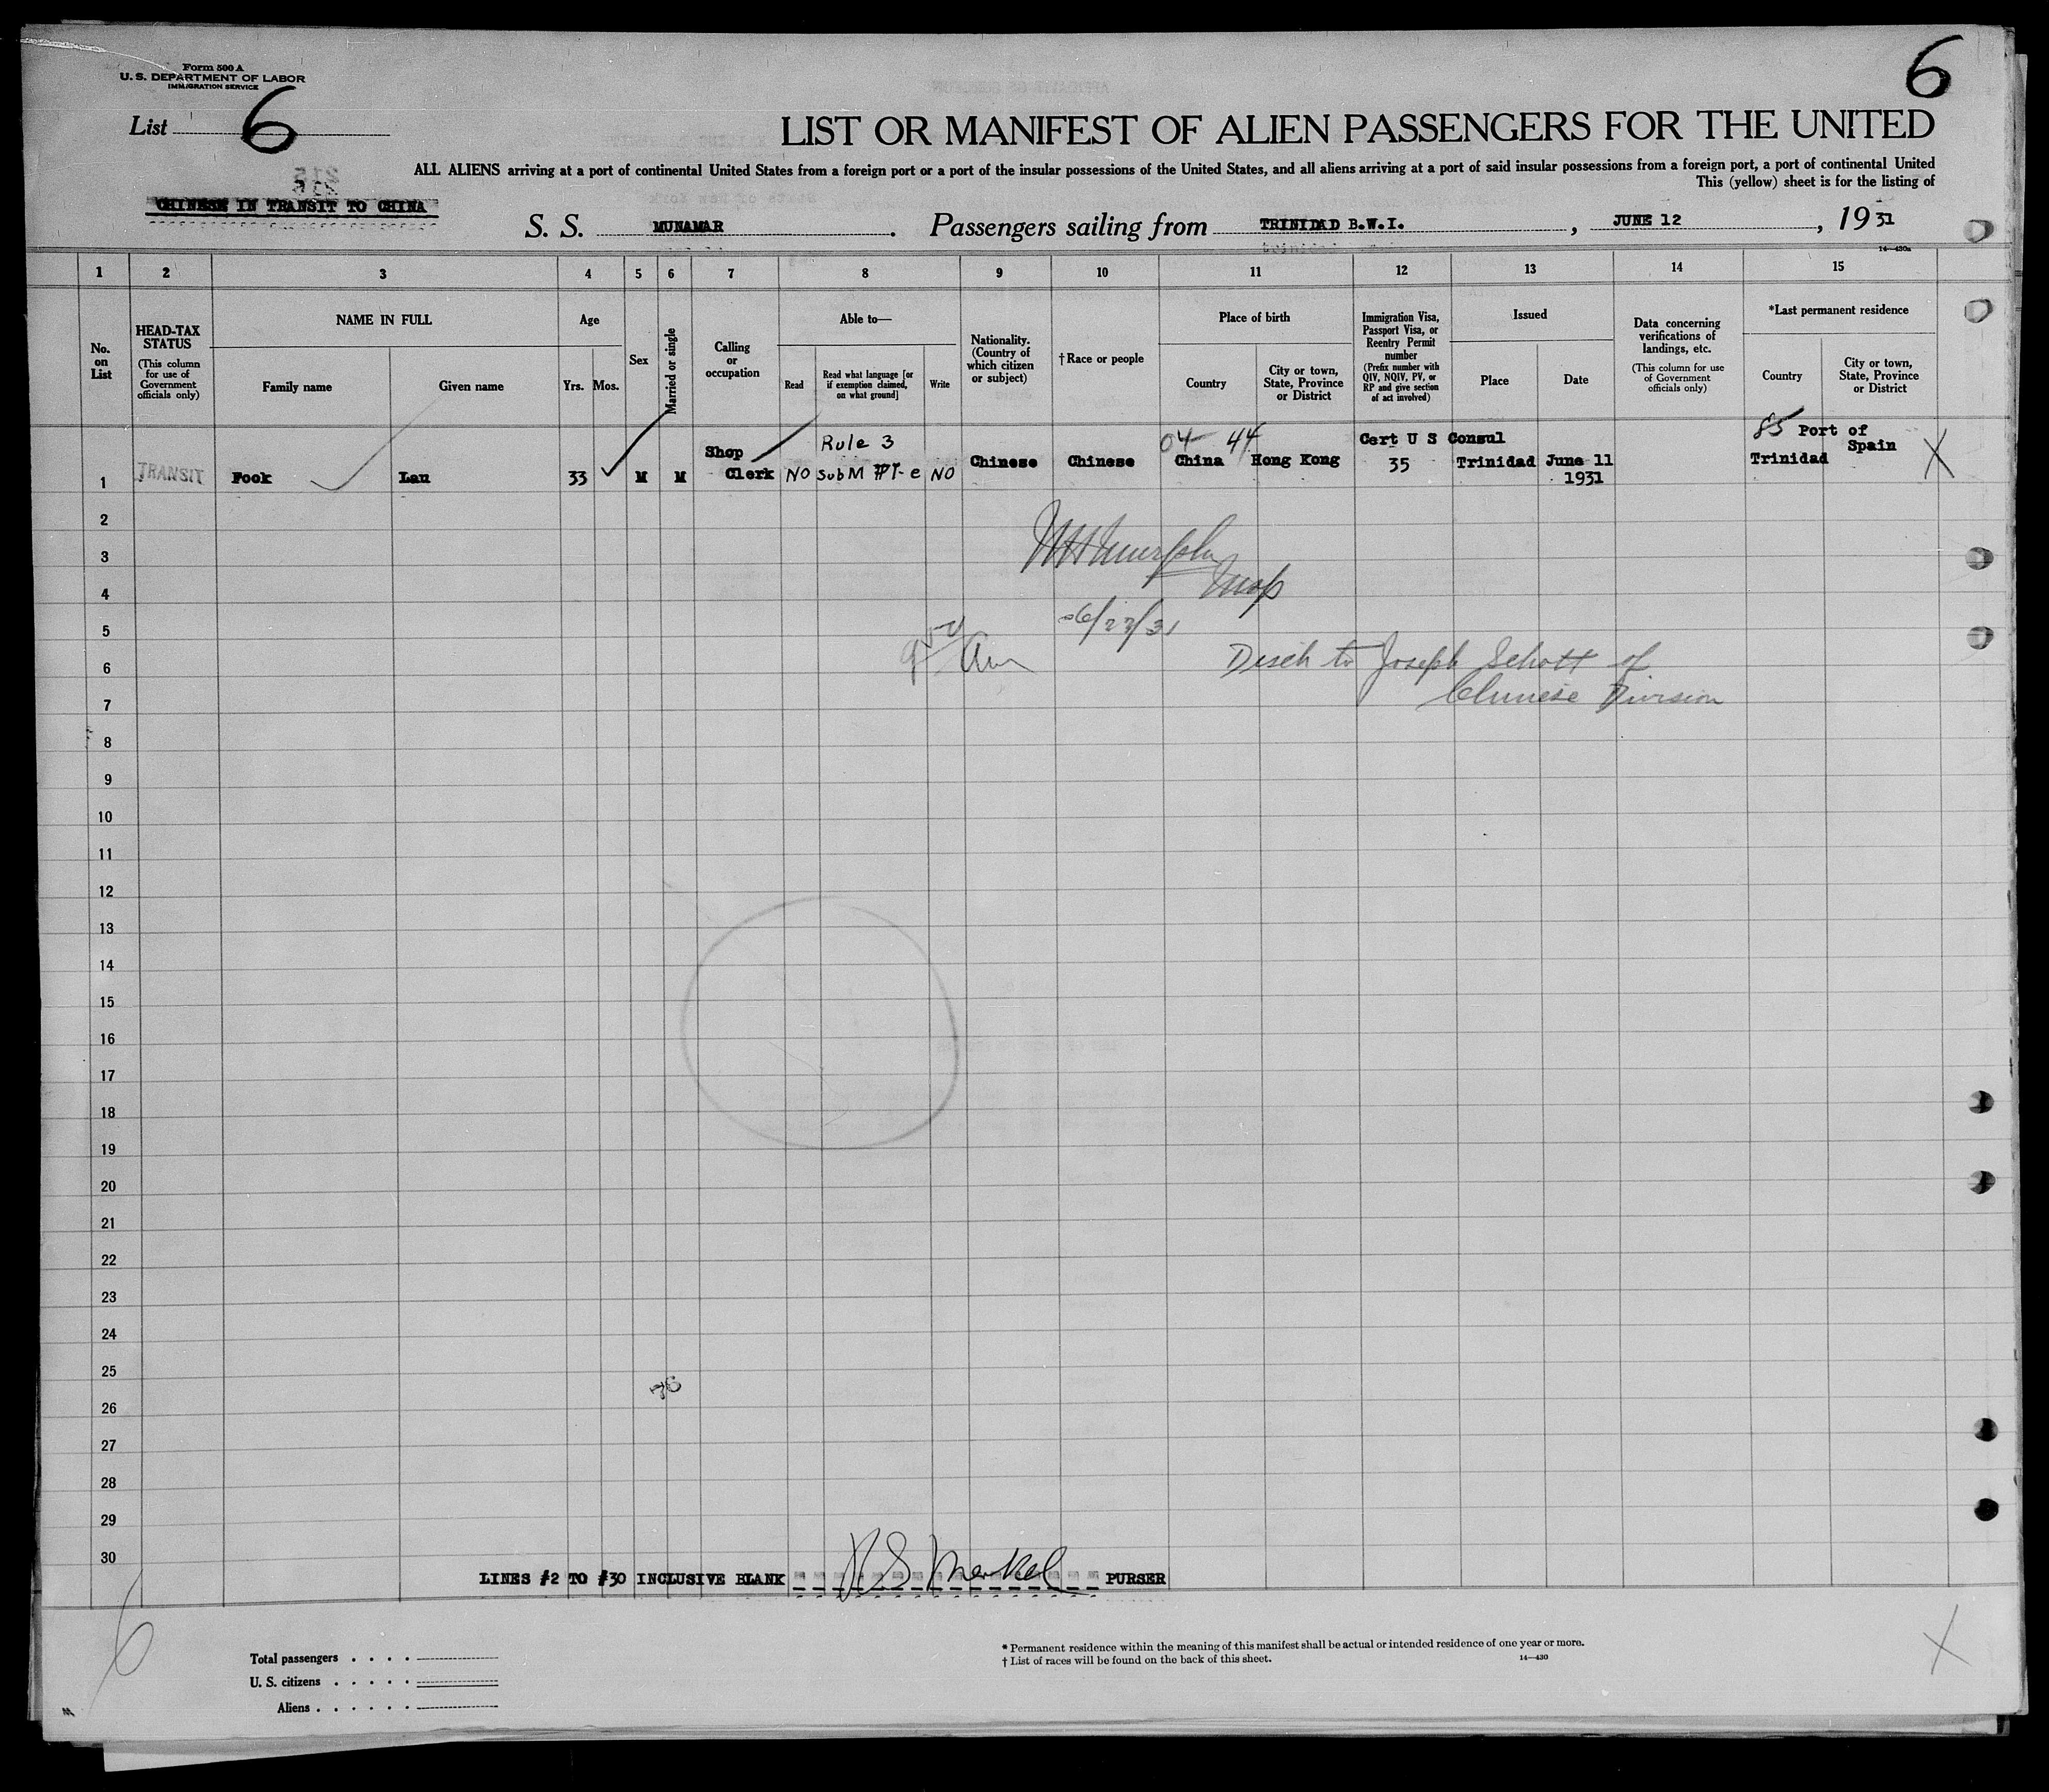 Form 500 A
U. S. DEPARTMENT OF LABOR
IMMIGRATION SERVICE
6
List 6
LIST OR MANIFEST OF ALIEN PASSENGERS FOR THE UNITED
ALL ALIENS arriving at a port of continental United States from a foreign port or a port of the insular possessions of the United States, and all aliens arriving at a port of said insular possessions from a foreign port, a port of continental United
This (yellow) sheet is for the listing of
CHINESE IN TRANSIT TO CHINA
S. S. MUNAMAR. Passengers sailing from TRINIDAD B.W.I., JUNE 12, 1931
14—430a
1 2 3 4 5 6 7 8 9 10 11 12 13 14 15
No. on List
HEAD-TAX STATUS
(This column for use of Government officials only)
NAME IN FULL
Family name
Given name
Age
Yrs. Mos.
Sex
Married or single
Calling or occupation
Able to—
Read
Read what language [or if exemption claimed, on what ground]
Write
Nationality. (Country of which citizen or subject)
†Race or people
Place of birth
Country
City or town, State, Province or District
Immigration Visa, Passport Visa, or Reentry Permit number
(Prefix number with QIV, NQIV, PV, or RP and give section of act involved)
Issued
Place
Date
Data concerning verifications of landings, etc.
(This column for use of Government officials only)
*Last permanent residence
Country
City or town, State, Province or District
1 TRANSIT Fook Lau 33 M M Shop Clerk NO Rule 3 SubM #1-e NO Chinese Chinese 04 44 China Hong Kong Cert U S Consul 35 Trinidad June 11 1931 85 Trinidad Port of Spain X
2
3
Insp
4
5
6/27/31
9 50 Am
6
Disch to Joseph Schott of
Chinese Division
7
8
9
10
11
12
13
14
15
16
17
18
19
20
21
22
23
24
25
26
27
28
29
30
LINES #2 TO #30 INCLUSIVE BLANK PURSER
6
X
Total passengers . . . .
U. S. citizens . . . . .
Aliens . . . . . .
* Permanent residence within the meaning of this manifest shall be actual or intended residence of one year or more.
† List of races will be found on the back of this sheet.
14—430